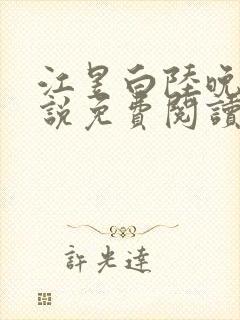 江昱白陸晚
說免費閱讀
許光達